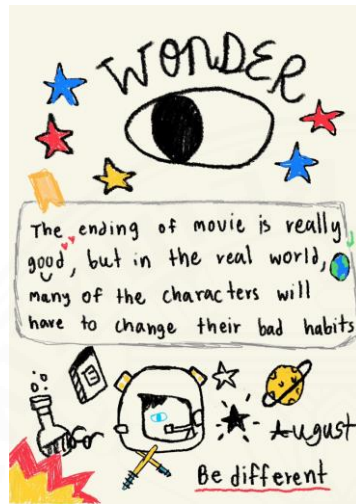 WONDER
The ending of movie is really
good, but in the real world,
many of the characters will
have to change their bad habits
August
Be different